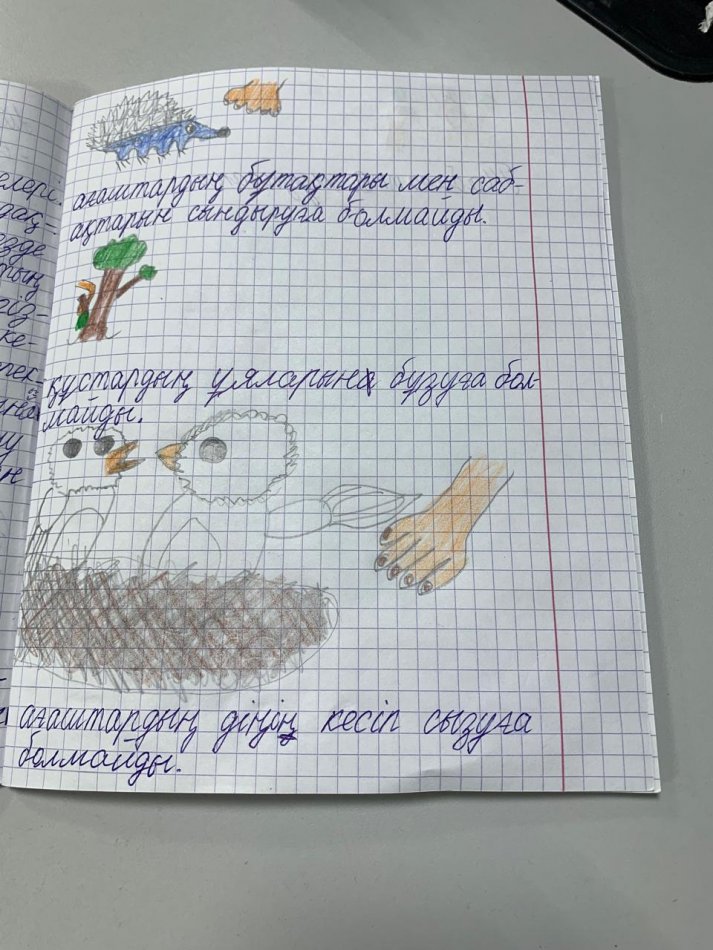 елері.
ағаштардың бұтақтары мен саб-
ақтарын сындыруға болмайды.
құстардың ұяларына бұзуға бол-
майды.
ағаштардың діңін кесіп сызуға
болмайды.